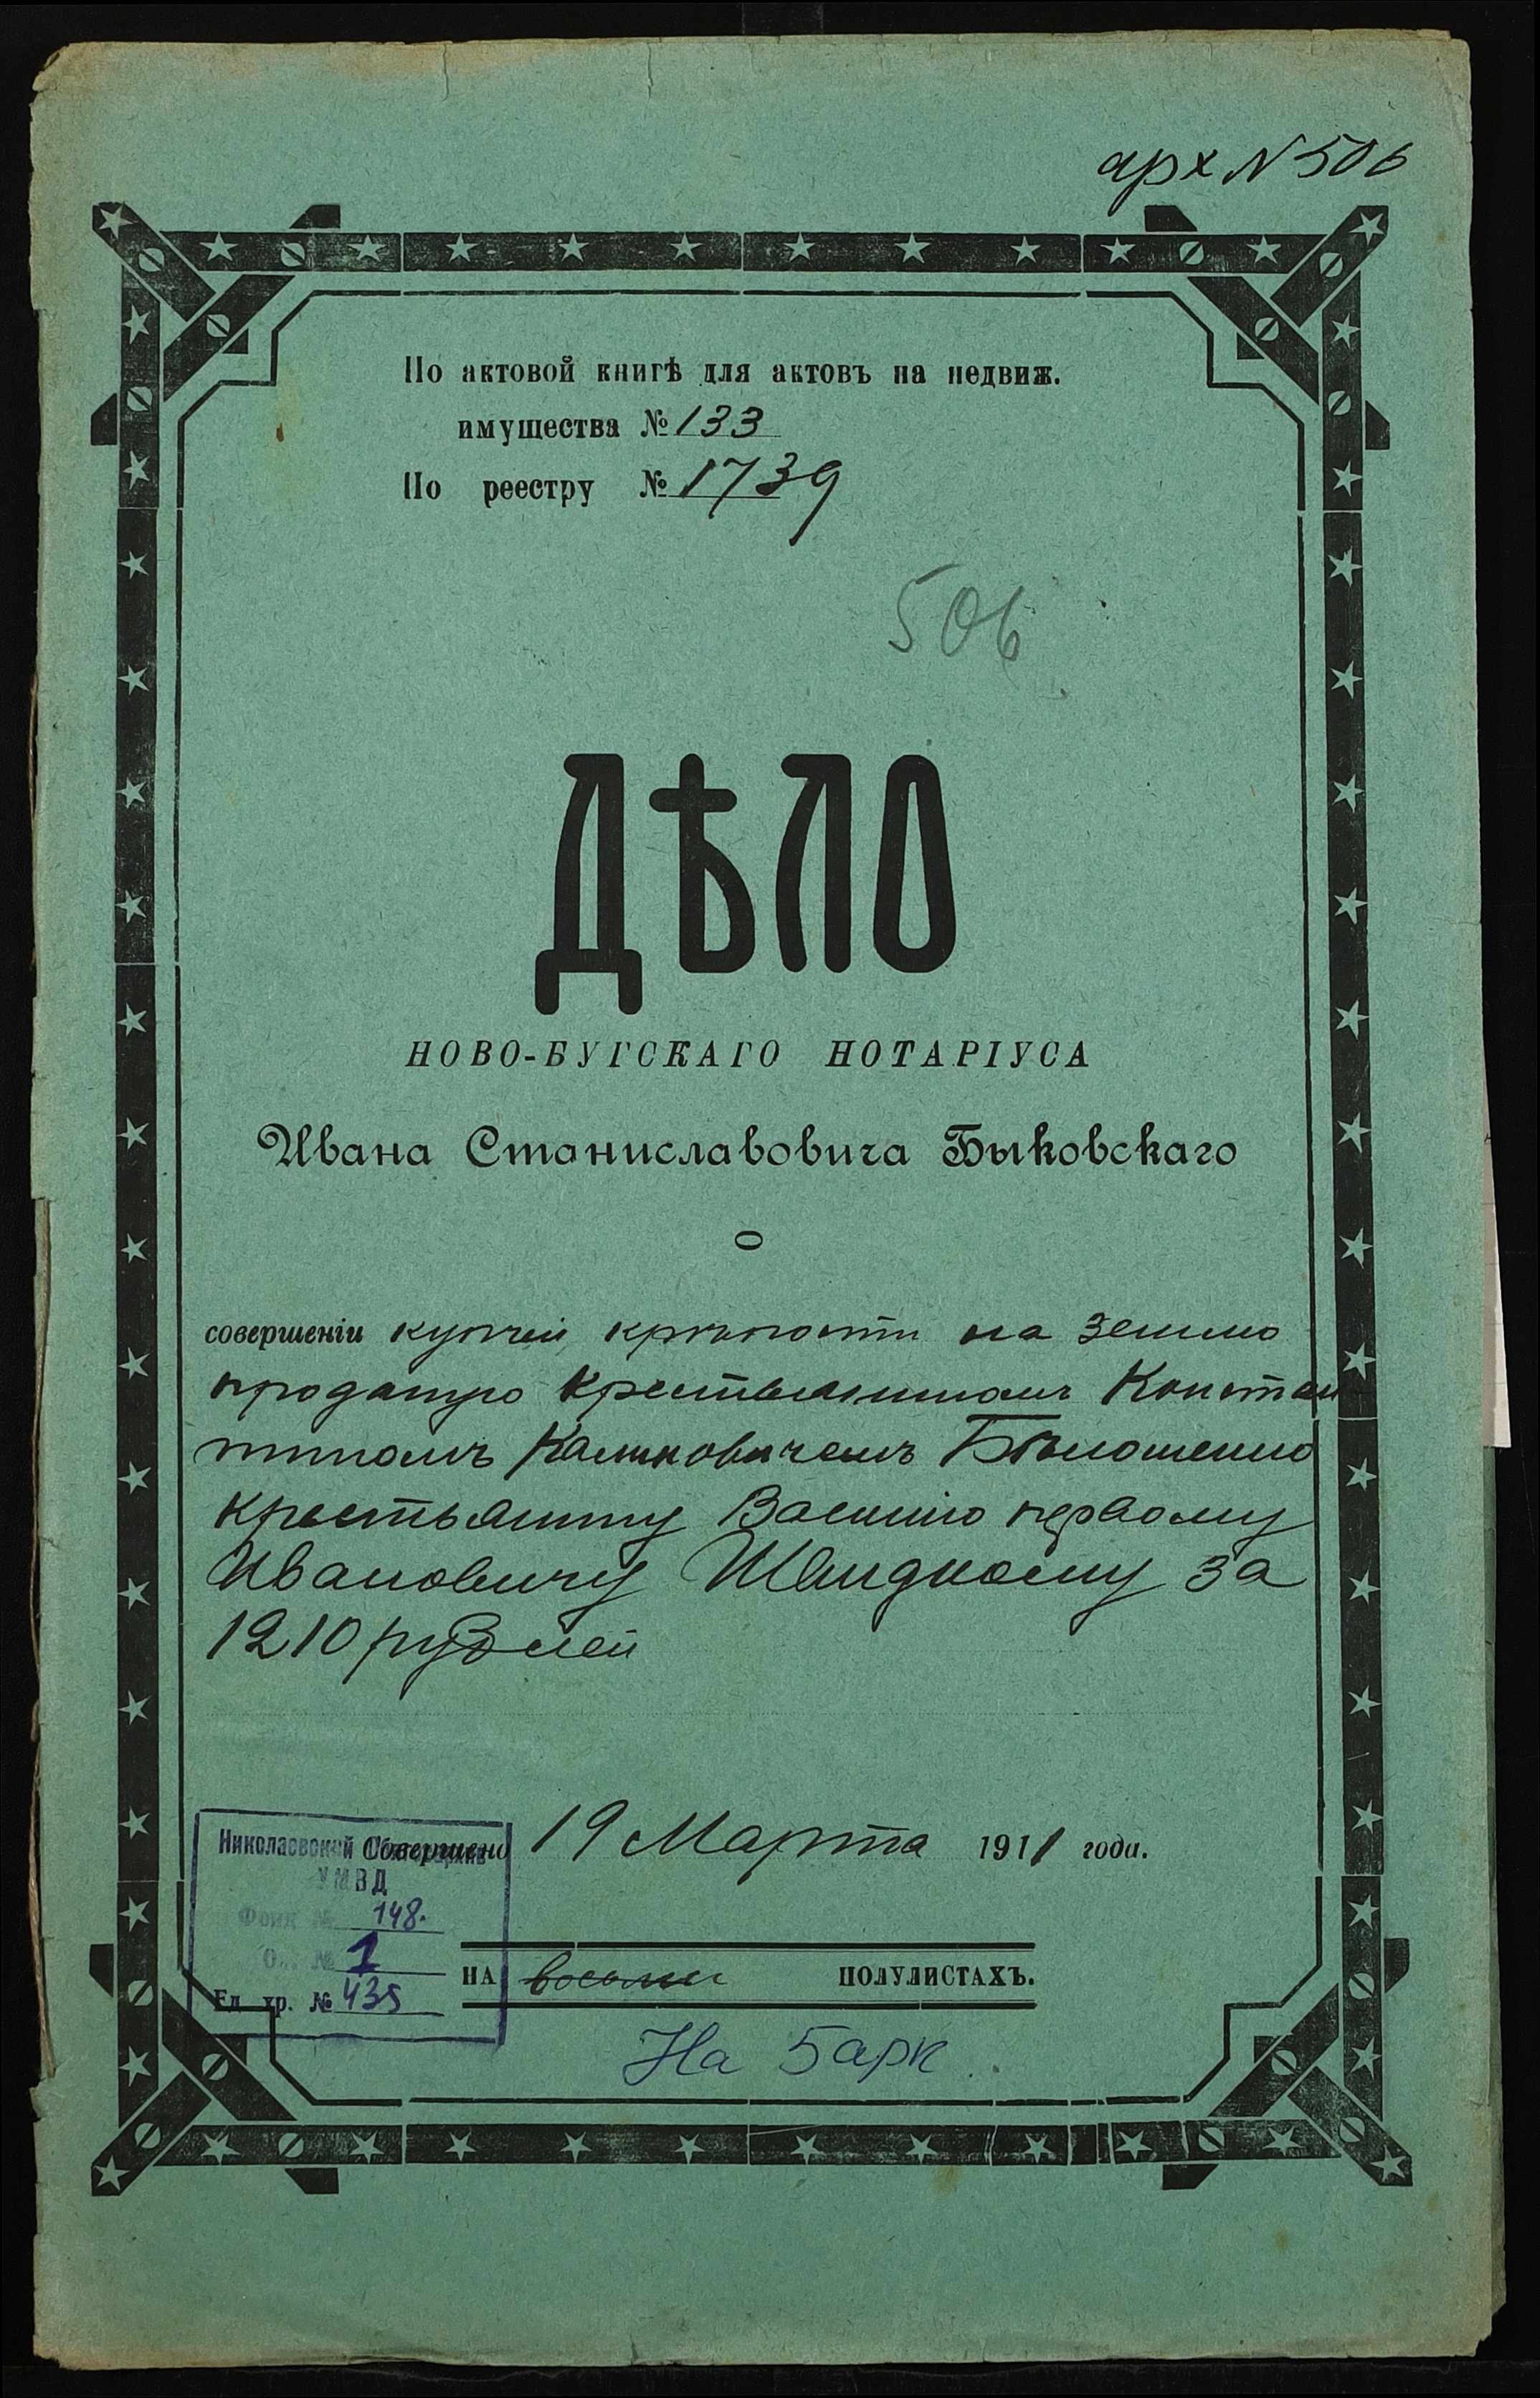 арх N 506
По актовой книгѣ для актовъ на недвиж.
имущества № 133
По реестру № 1739
506
ДѢЛО
НОВО-БУГСКАГО НОТАРІУСА
Ивана Станиславовича Быковскаго
О
совершеніи купчей крѣпости на землю
проданную крестьяниномъ Констан
тиномъ Калиновичемъ Бѣлошенко
крестьянину Василію первому
Ивановичу Швидкому за
1210 рублей
Совершено 19 Марта 1911 года.
Николаевский Облгосархив
УМВД
Фонд № 148.
Оп. № 1
Ед. хр. № 435
НА восьми ПОЛУЛИСТАХЪ.
На 5 арк.